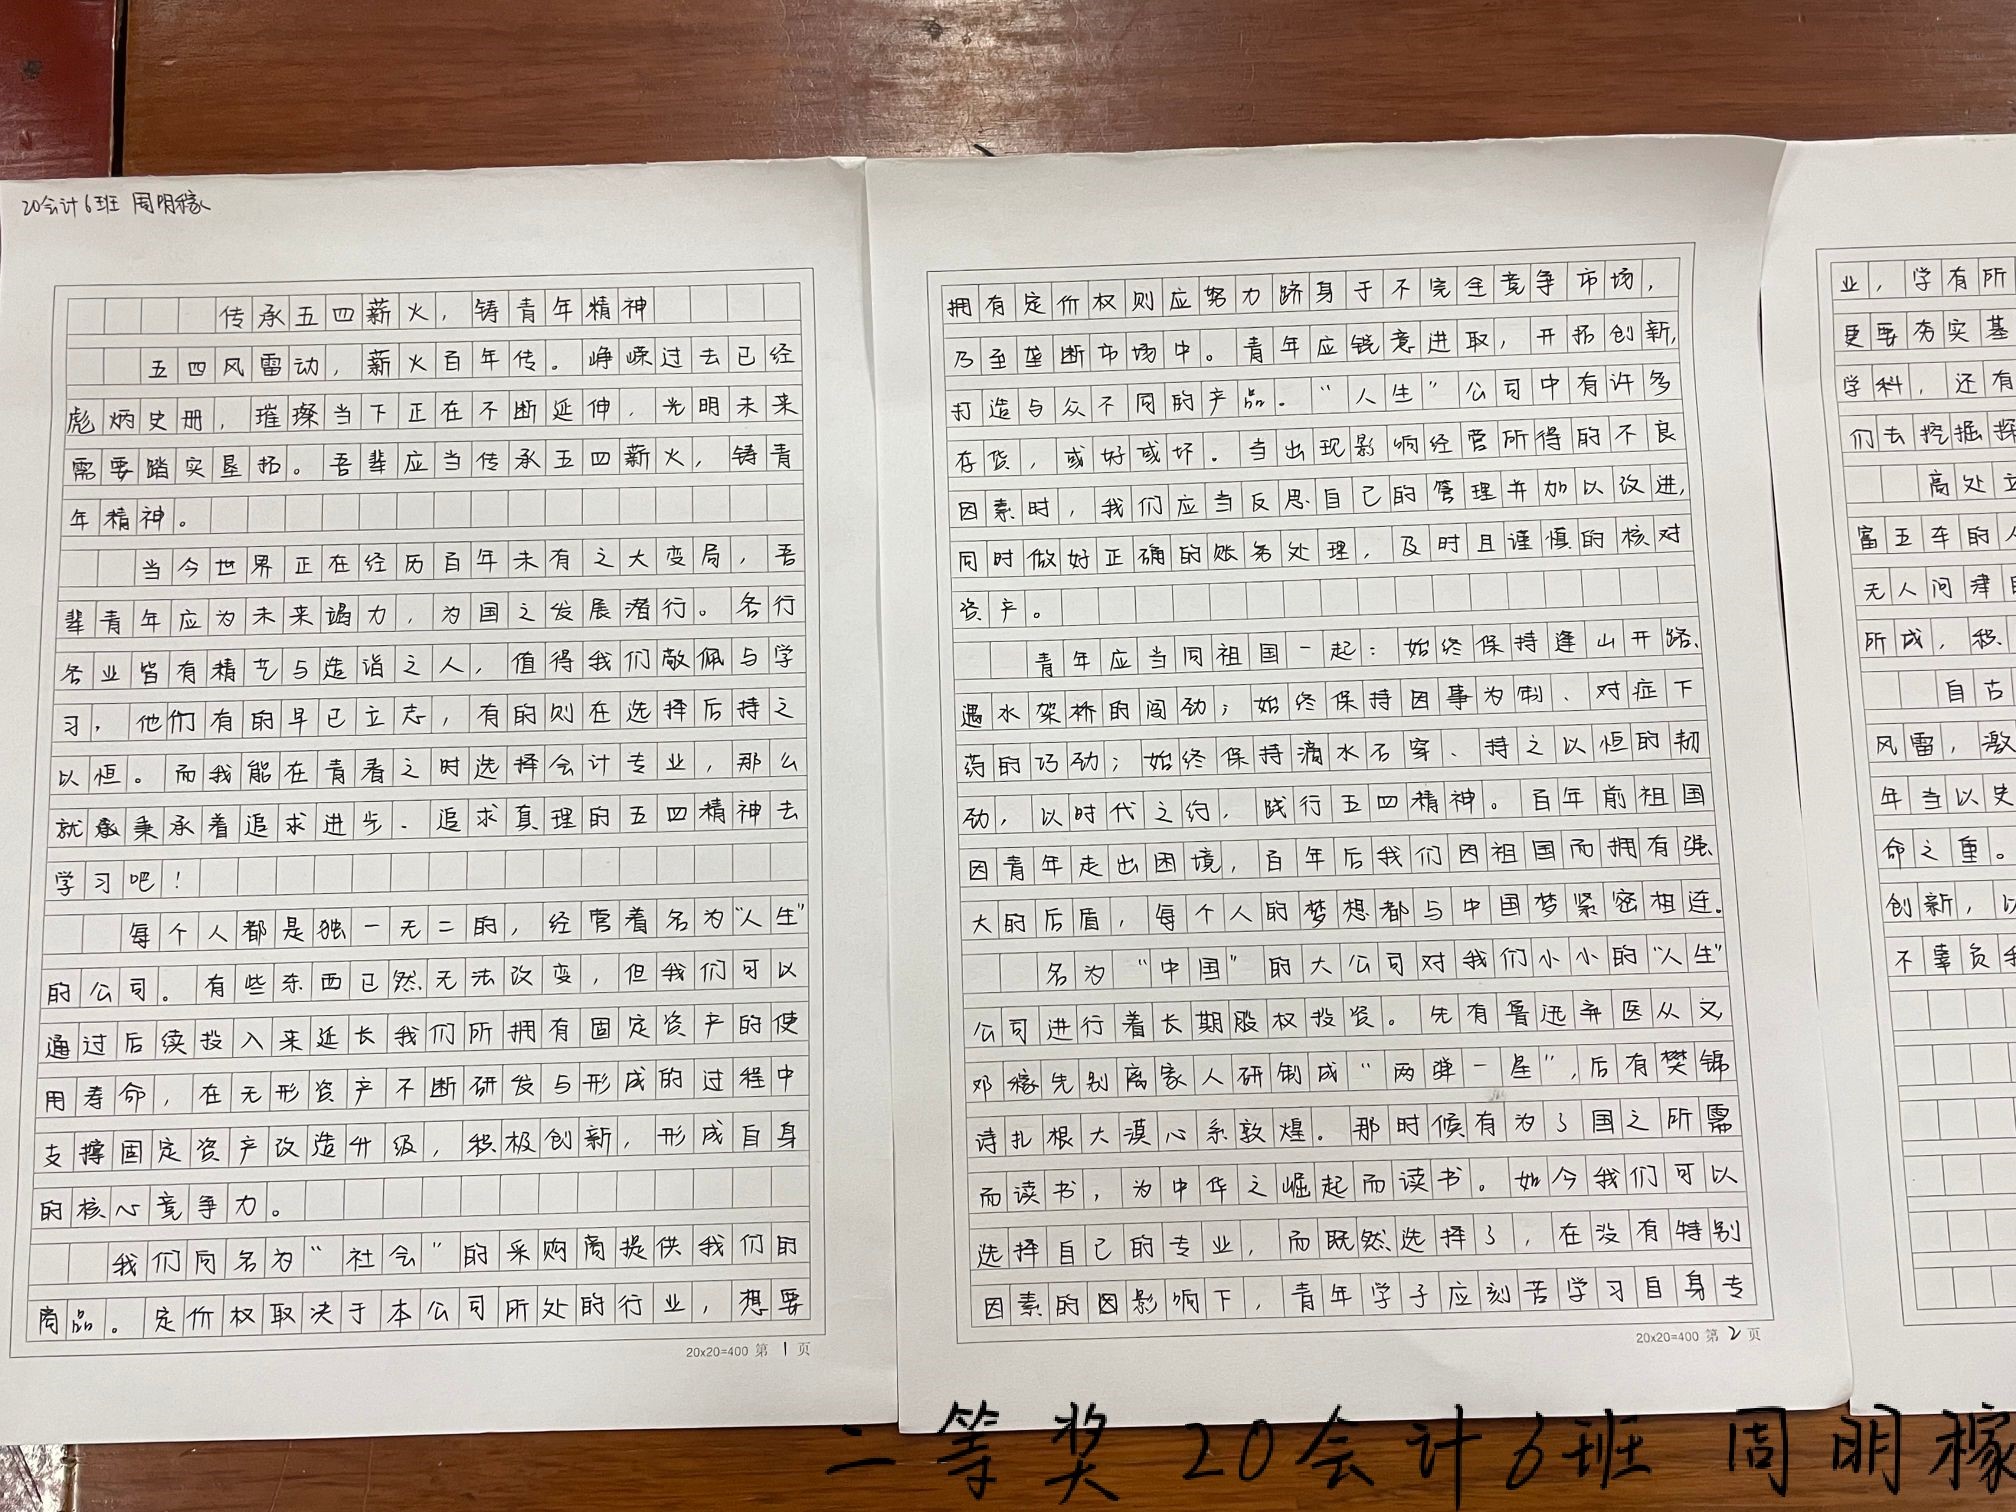 20会计6班 周明稼
传承五四薪火，铸青年精神
五四风雷动，薪火百年传。峥嵘过去已经
彪炳史册，璀璨当下正在不断延伸，光明未来
需要踏实垦拓。吾辈应当传承五四薪火，铸青
年精神。
当今世界正在经历百年未有之大变局，吾
辈青年应为未来竭力，为国之发展潜行。各行
各业皆有精艺与造诣之人，值得我们敬佩与学
习，他们有的早已立志，有的则在选择后持之
以恒。而我能在青春之时选择会计专业，那么
就秉承着追求进步、追求真理的五四精神去
学习吧！
每个人都是独一无二的，经营着名为“人生”
的公司。有些东西已然无法改变，但我们可以
通过后续投入来延长我们所拥有固定资产的使
用寿命，在无形资产不断研发与形成的过程中
支撑固定资产改造升级，积极创新，形成自身
的核心竞争力。
我们向名为“社会”的采购商提供我们的
商品。定价权取决于本公司所处的行业，想要
20x20=400 第 1 页
拥有定价权则应努力跻身于不完全竞争市场，
乃至垄断市场中。青年应锐意进取，开拓创新，
打造与众不同的产品。“人生”公司中有许多
存货，或好或坏。当出现影响经营所得的不良
因素时，我们应当反思自己的管理并加以改进，
同时做好正确的账务处理，及时且谨慎的核对
资产。
青年应当同祖国一起：始终保持逢山开路、
遇水架桥的闯劲；始终保持因事为制、对症下
药的巧劲；始终保持滴水石穿、持之以恒的韧
劲，以时代之约，践行五四精神。百年前祖国
因青年走出困境，百年后我们因祖国而拥有强
大的后盾，每个人的梦想都与中国梦紧密相连。
名为“中国”的大公司对我们小小的“人生”
公司进行着长期股权投资。先有鲁迅弃医从文，
邓稼先别离家人研制成“两弹一星”，后有樊锦
诗扎根大漠心系敦煌。那时候有为了国之所需
而读书，为中华之崛起而读书。如今我们可以
选择自己的专业，而既然选择了，在没有特别
因素的因影响下，青年学子应刻苦学习自身专
20x20=400 第 2 页
业，学有所
更要夯实基
学科，还有
们去挖掘探
高处立
富五车的人
无人问津的
所成，积
自古
风雷，激
年当以史
命之重。
创新，以
不辜负我
二等奖 20会计6班 周明稼